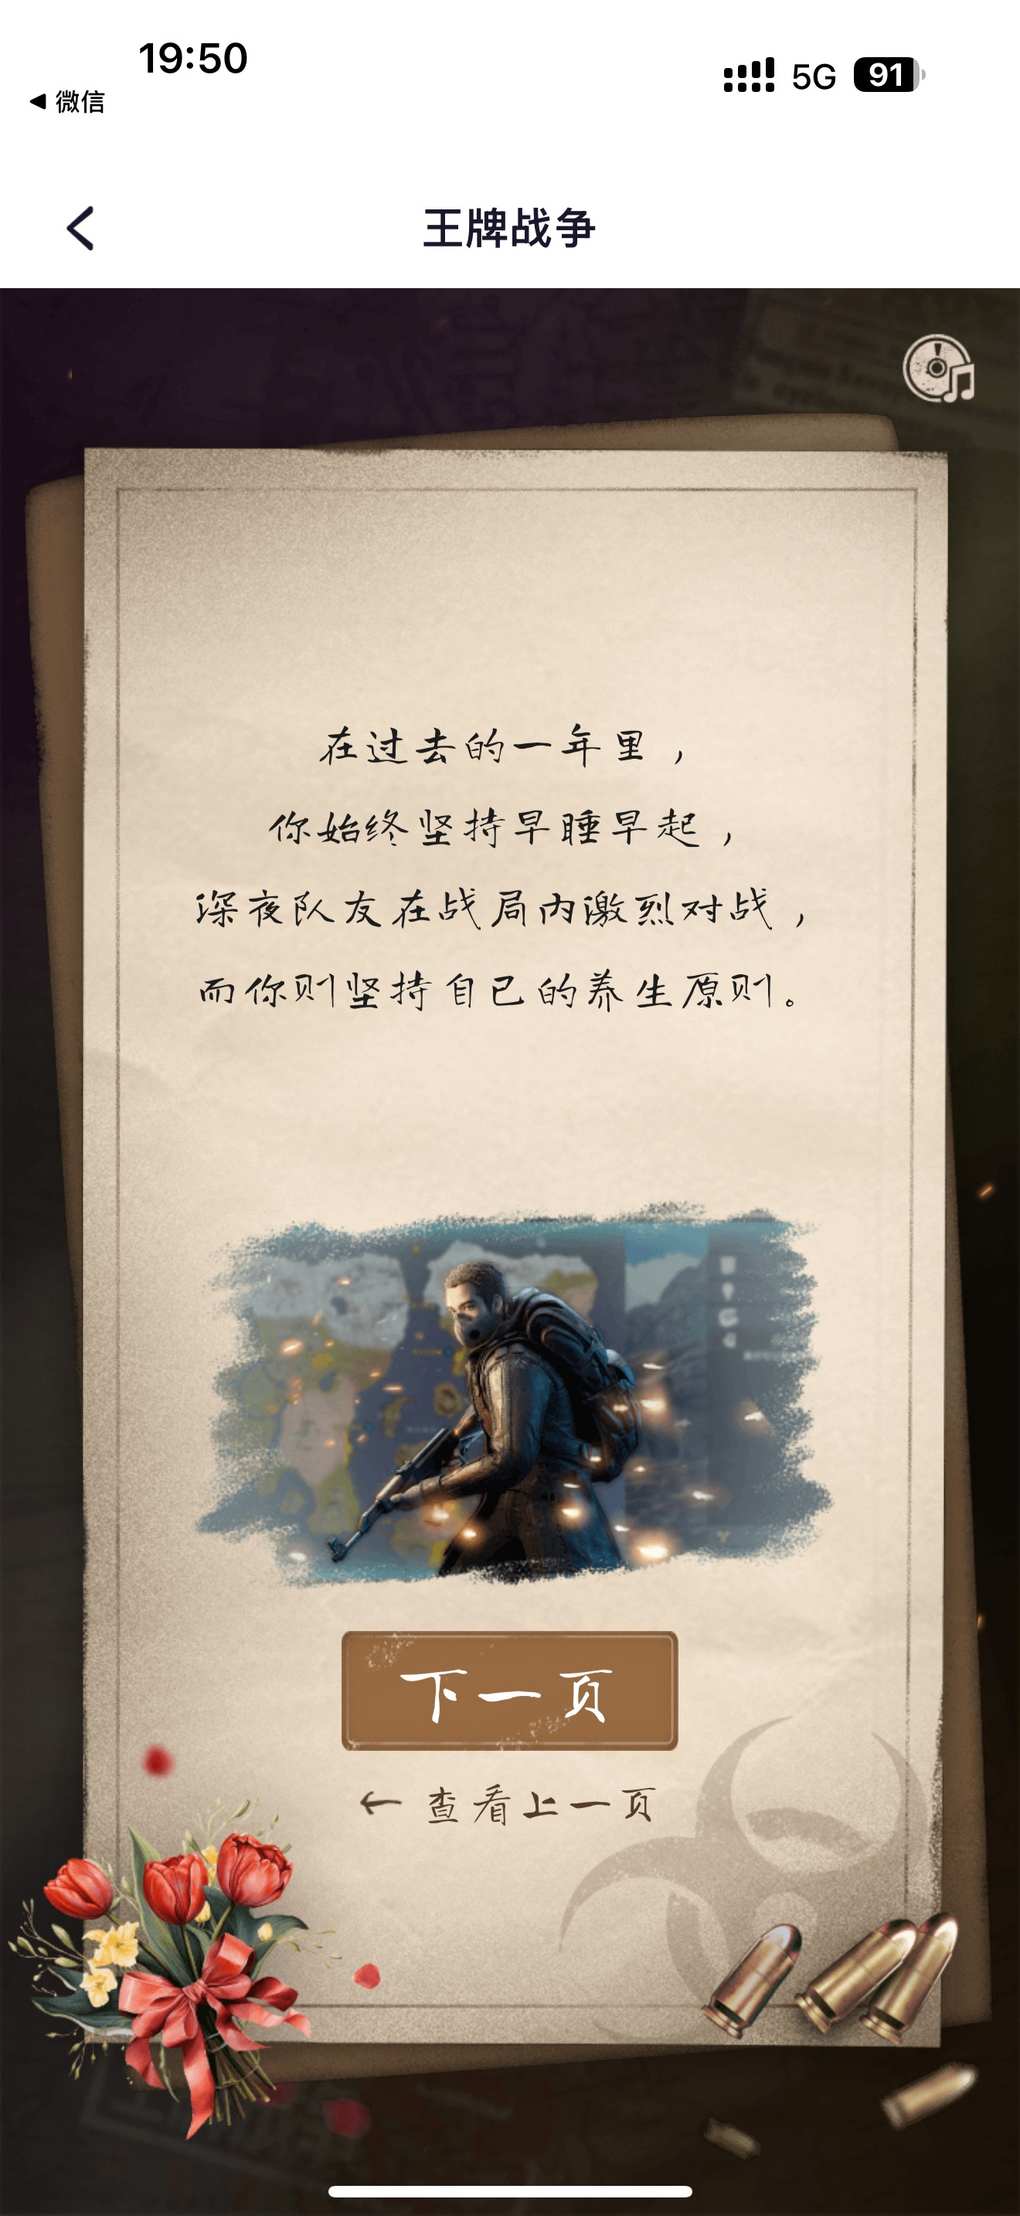 19:50
5G
91
◀ 微信
王牌战争
在过去的一年里，
你始终坚持早睡早起，
深夜队友在战局内激烈对战，
而你则坚持自己的养生原则。
下一页
← 查看上一页